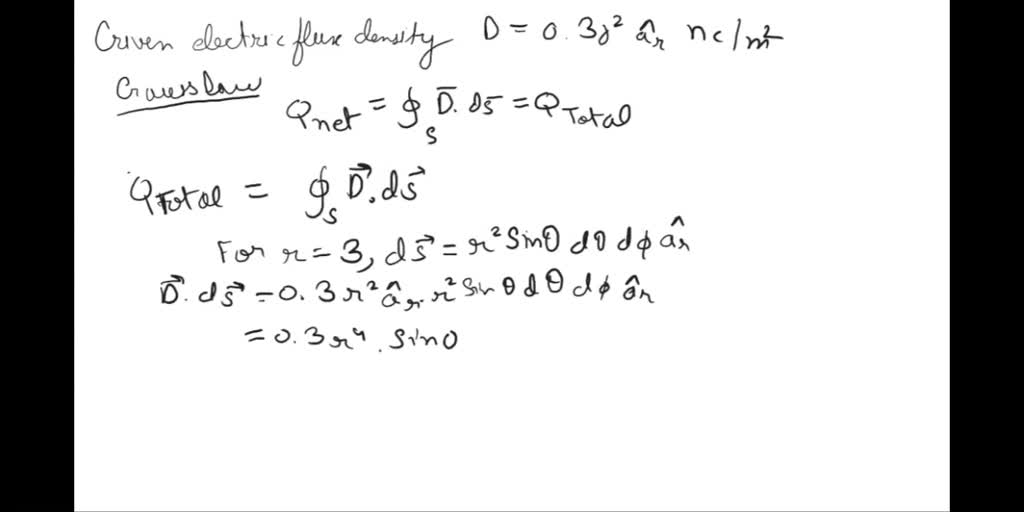 Given electric flux density D = 0.3r² âᵣ nc/m²
Gauss law
Qnet = ∮ₛ D̄. ds̄ = QTotal
QTotal = ∮ₛ D⃗. ds⃗
For r = 3, ds⃗ = r² Sinθ dθ dϕ âᵣ
D⃗. ds⃗ = 0.3 r² âᵣ. r² Sin θ d θ d ϕ âᵣ
= 0.3 r⁴. Sinθ